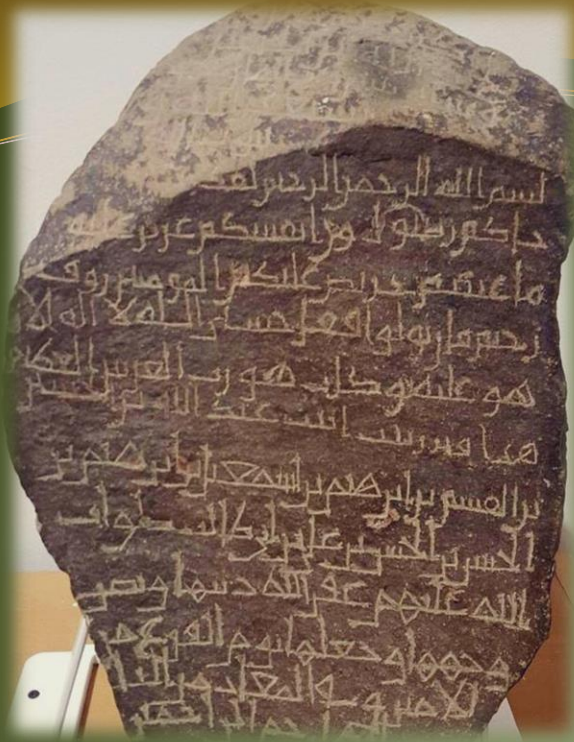 بسم الله الرحمن الرحيم لقد
جاكم رسول من انفسكم عزيز عليه
ما عنتم حريص عليكم بالمومنين روف
رحيم فان تولوا فقل حسبي الله لا اله الا
هو عليه توكلت وهو رب العرش العظيم
هذا قبر زينب ابنت عبد الله بن الحسين
بن القسم بن ابرهيم بن اسمعيل بن ابرهيم بن
الحسن بن الحسن بن علي بن ابي طالب صلوات
الله عليهم غفر الله ذنبها وبيض
وجهها وجعلها يوم الفزع من
الامنين المعاد من